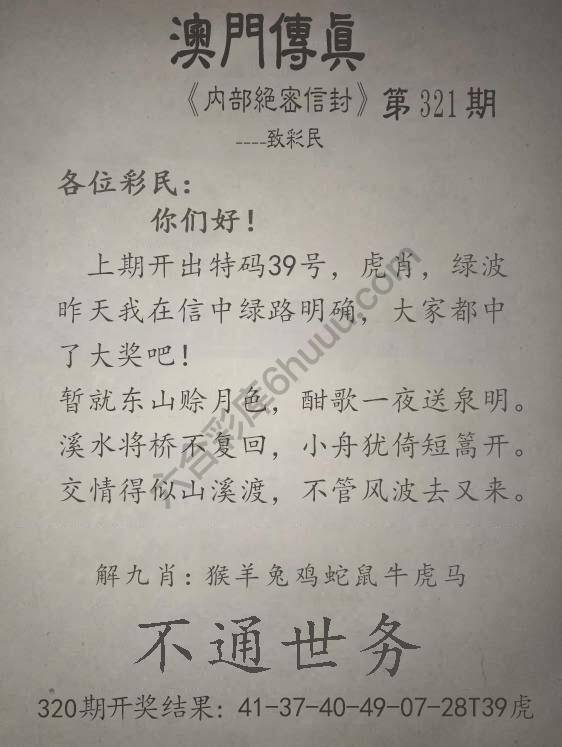 澳門傳眞
《内部絕密信封》第321期
----致彩民
各位彩民：
你们好！
上期开出特码39号，虎肖，绿波
昨天我在信中绿路明确，大家都中
了大奖吧！
暂就东山赊月色，酣歌一夜送泉明。
溪水将桥不复回，小舟犹倚短篙开。
交情得似山溪渡，不管风波去又来。
解九肖：猴羊兔鸡蛇鼠牛虎马
不通世务
320期开奖结果：41-37-40-49-07-28T39虎
六合彩库6huuu.com